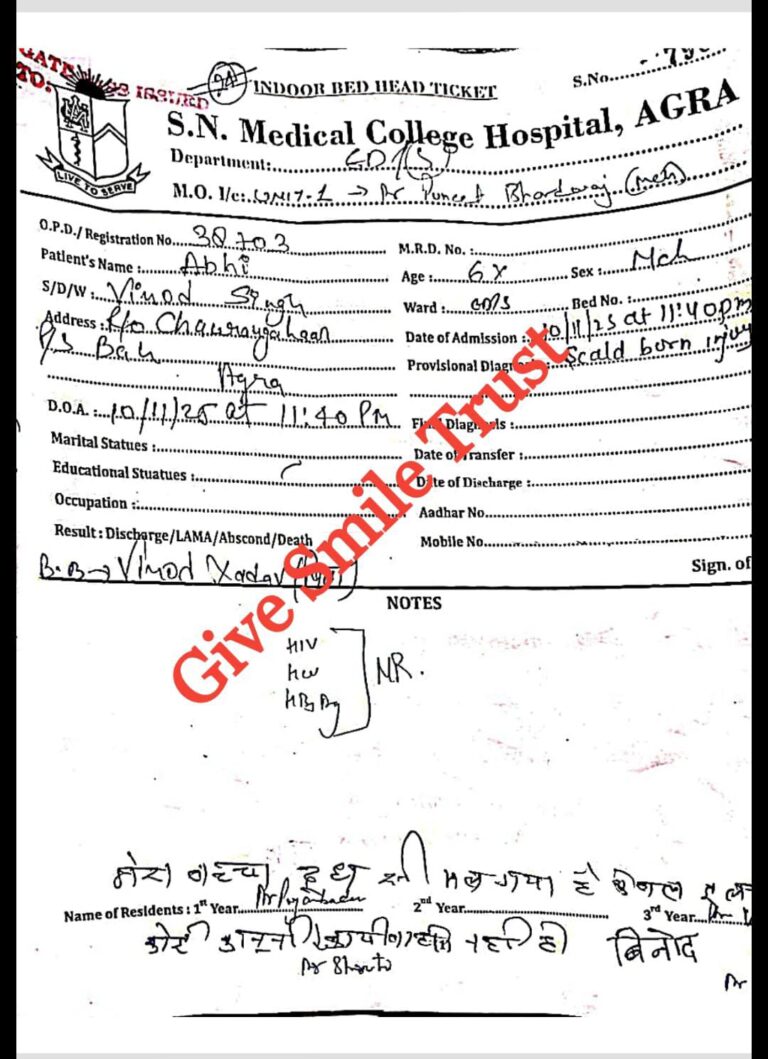 GATE
TO:
ISSUED
24
INDOOR BED HEAD TICKET
S.No.
LIVE TO SERVE
S.N. Medical College Hospital, AGRA
Department:
M.O. I/c: UNIT-1 → Dr Puneet Bhardwaj
O.P.D./ Registration No. 38703
M.R.D. No. :
Patient's Name : Abhi
Age : 6Y Sex : Mch
S/D/W : Vinod Singh
Ward : Bed No. :
Address : R/o
Date of Admission : 10/11/25 at 11:40pm
P/S Bah
Provisional Diagn Scald burn injury
Agra
D.O.A. : 10/11/25 at 11:40 PM
Final Diagnosis :
Marital Statues :
Date of Transfer :
Educational Stuatues :
Date of Discharge :
Occupation :
Aadhar No.
Result : Discharge/LAMA/Abscond/Death
Mobile No.
B.B→ Vinod Yadav (पिता)
Sign. of
NOTES
HIV
HBsAg
NR.
Give Smile Trust
मेरा बच्चा दूध से जल गया है
Name of Residents : 1st Year 2nd Year 3rd Year
कोई कानूनी नही बिनोद
Dr